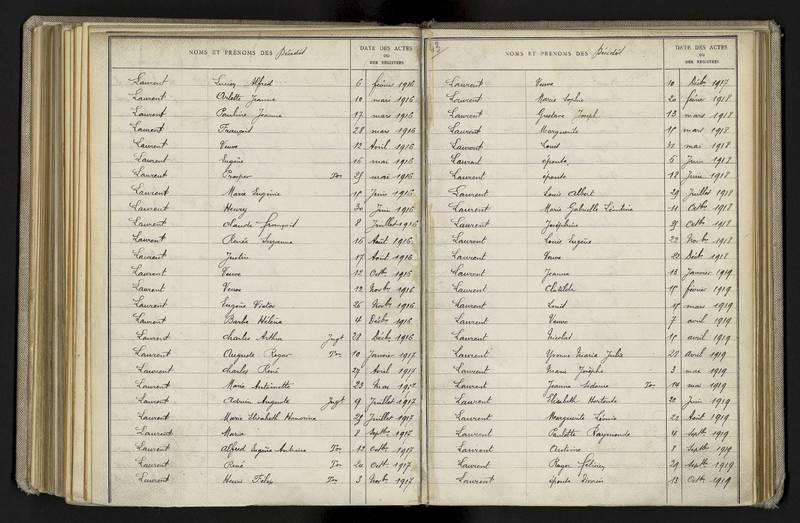 NOMS ET PRÉNOMS DES Décédés
DATE DES ACTES
OU
DES REGISTRES
Laurent Lucien Alfred 6 février 1916
Laurent Arlette Jeanne 10 mars 1916
Laurent Pauline Jeanne 17 mars 1916
Laurent François 28 mars 1916
Laurent Veuve 12 Avril 1916
Laurent Eugène 16 mai 1916
Laurent Prosper 25 mai 1916
Laurent Marie Eugénie Juin 1916
Laurent Henry 30 Juin 1916
Laurent Claude François 8 Juillet 1916
Laurent Renée Suzanne 16 Août 1916
Laurent Justin 17 Août 1916
Laurent Veuve 12 Octb. 1916
Laurent Veuve 12 Novb. 1916
Laurent Eugène Victor 26 Novb. 1916
Laurent Barbe Hélène 4 Décb. 1916
Laurent Charles Arthur Jugt 28 Décb. 1916
Laurent Auguste Roger 10 Janvier 1917
Laurent Charles René 24 Avril 1917
Laurent Marie Antoinette 23 Mai
Laurent Adrien Auguste Jugt 9 Juillet 1917
Laurent Marie Elisabeth Honorine 29 Juillet 1917
Laurent Maria 8 Septb. 1917
Laurent Alfred Eugène 12 Octb. 1917
Laurent René 20 Octb. 1917
Laurent Henri Félix 3 Novb. 1917
43
NOMS ET PRÉNOMS DES Décédés
DATE DES ACTES
OU
DES REGISTRES
Laurent Veuve 10 Décb. 1917
Laurent Marie Sophie 20 février 1918
Laurent Gustave Joseph 13 mars 1918
Laurent Marguerite mars 1918
Laurent Louis mai 1918
Laurent épouse 6 Juin 1918
Laurent épouse 18 Juin 1918
Laurent Louis Albert 29 Juillet 1918
Laurent Marie Gabrielle Léontine 11 Octb. 1918
Laurent Joséphine Octb. 1918
Laurent Louis Eugène 22 Novb. 1918
Laurent Veuve Décb. 1918
Laurent Jeanne 13 Janvier 1919
Laurent Clotilde février 1919
Laurent Louis mars 1919
Laurent Veuve 7 avril 1919
Laurent Nicolas avril 1919
Laurent Yvonne Maria Julie 28 avril 1919
Laurent Marie Josèphe 3 mai 1919
Laurent Jeanne 14 mai 1919
Laurent Elisabeth Hortense 20 Juin 1919
Laurent Marguerite Léonie 22 Août 1919
Laurent Paulette Raymonde 4 Septb. 1919
Laurent Antoine 8 Septb. 1919
Laurent Roger 29 Septb. 1919
Laurent épouse 13 Octb. 1919